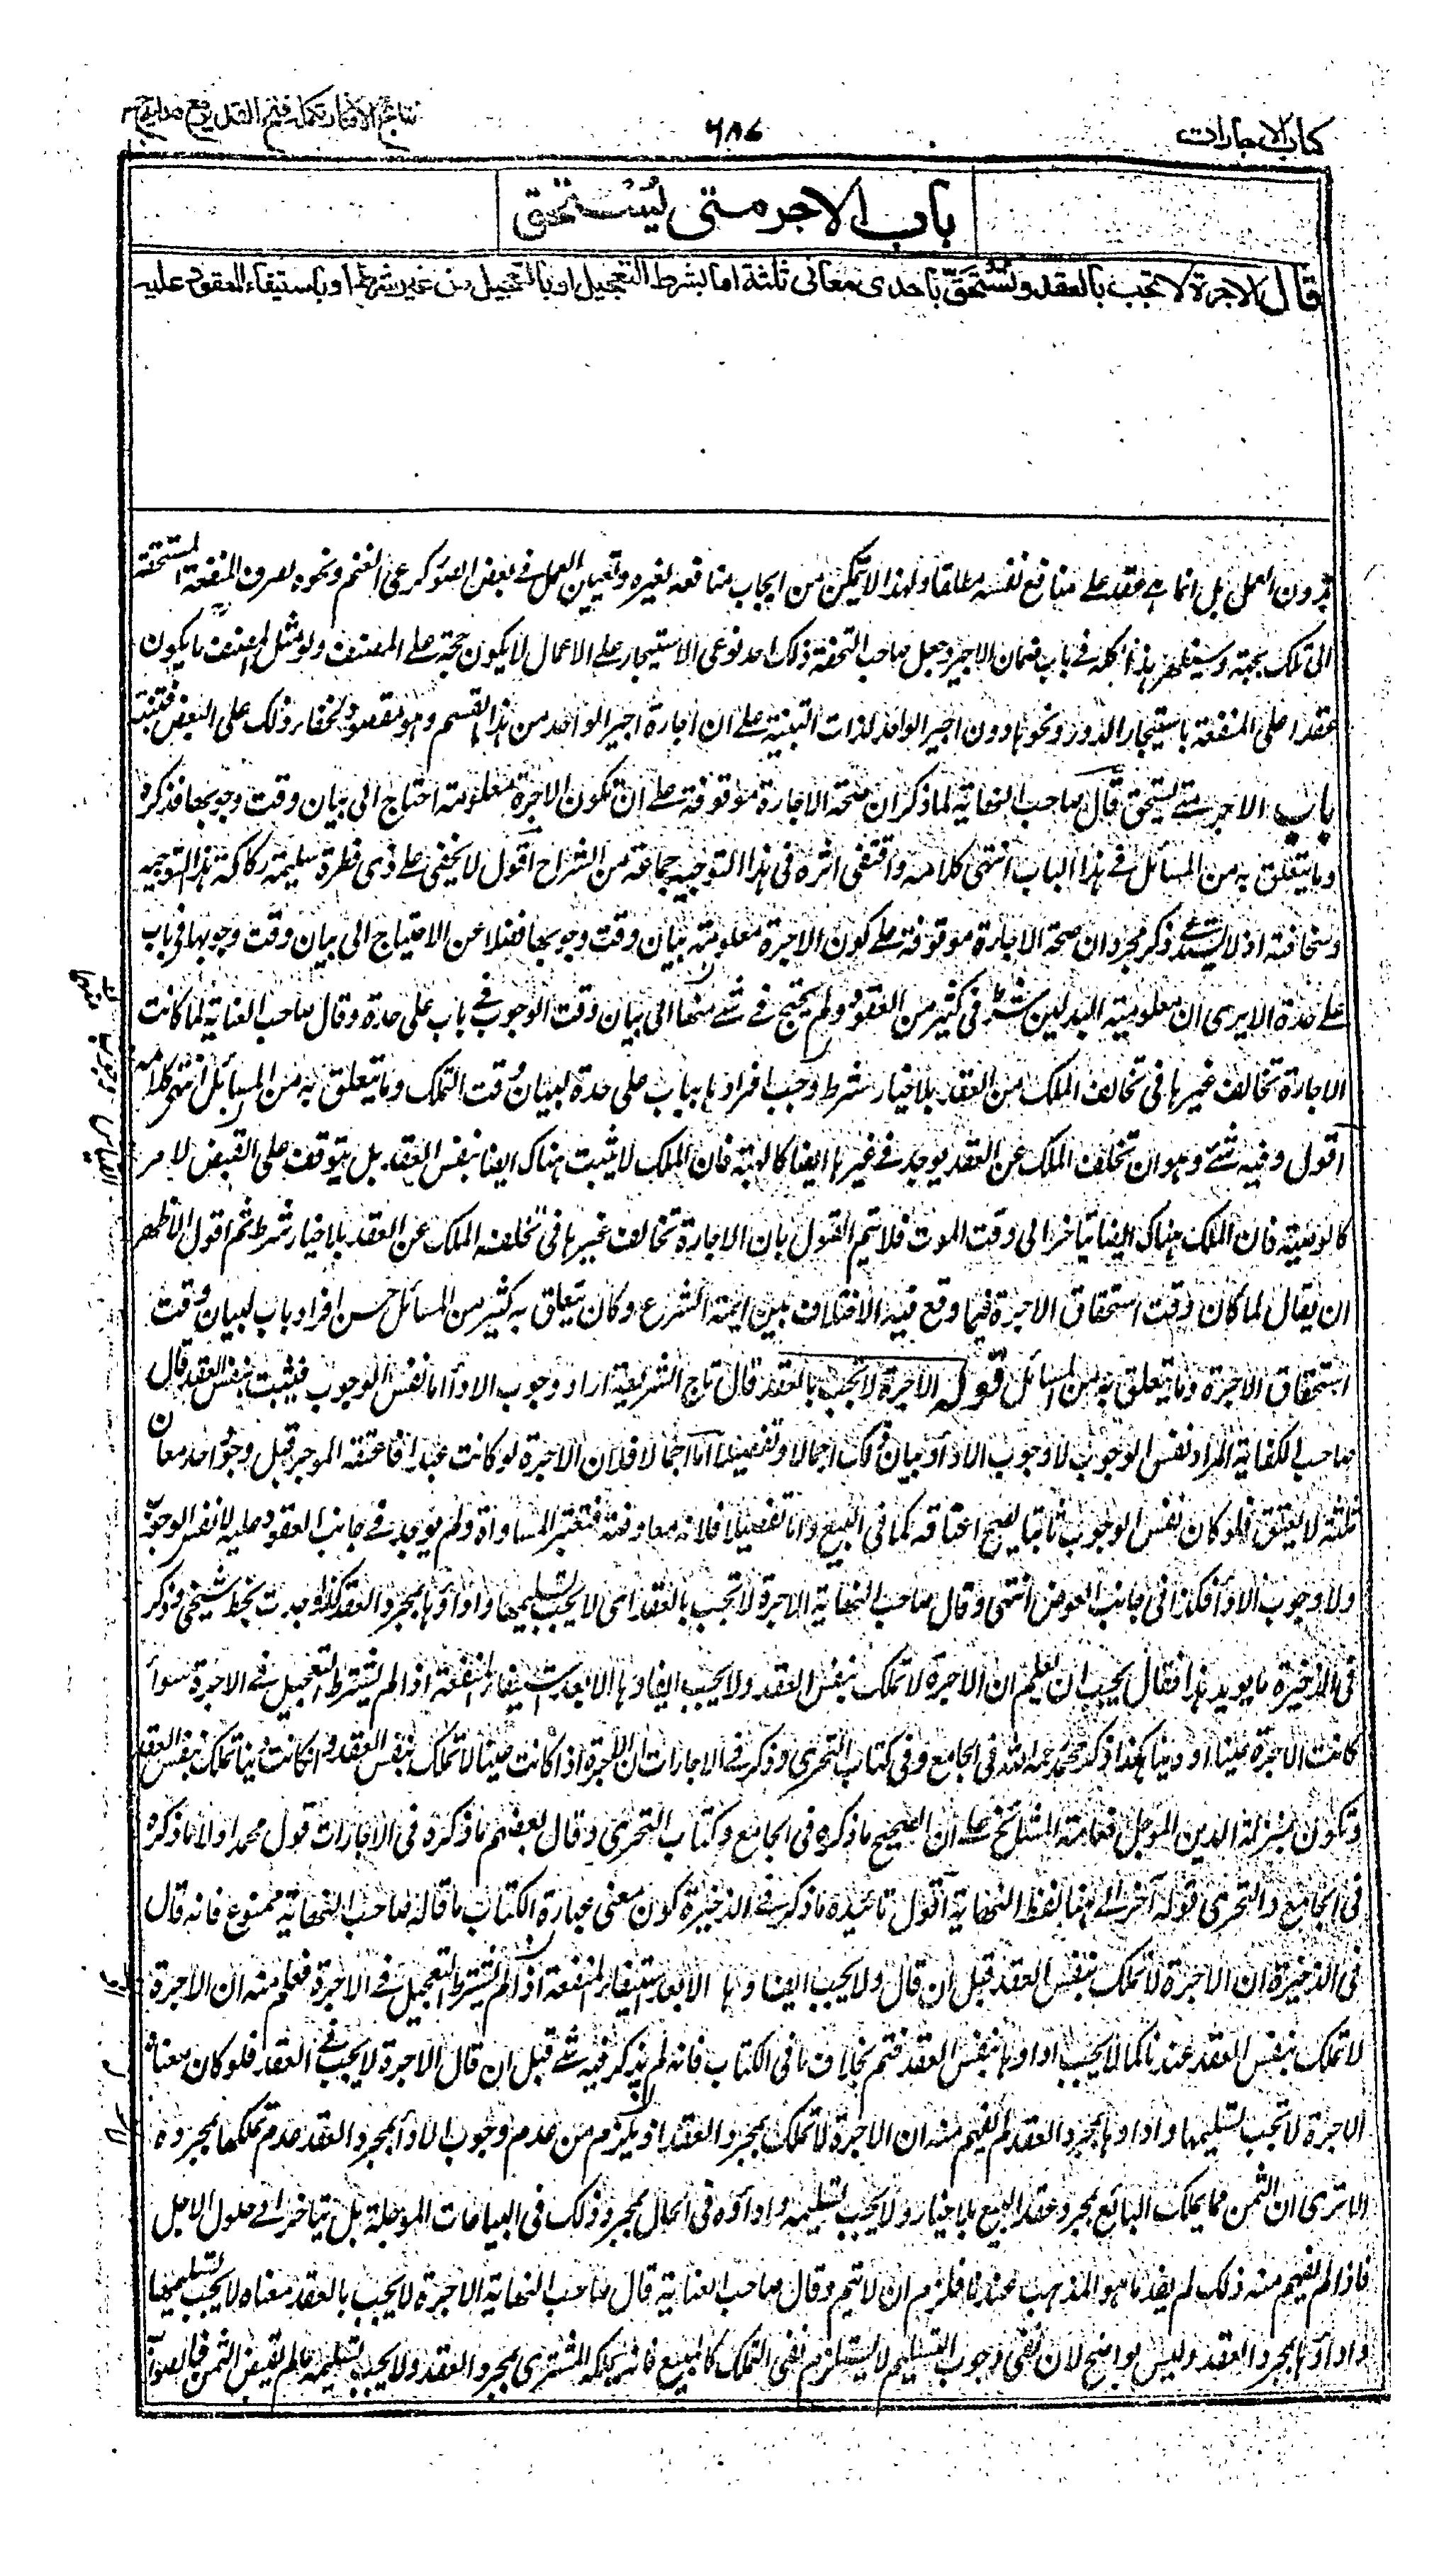 كتاب الاجارات
٦٨٧
نتائج الافكار تكملة فتح القدير مع هداية ج ٣
باب الاجر متى يستحق
قال الاجرة لا تجب بالعقد وتستحق باحدى معانى ثلثة اما بشرط التعجيل او بالتعجيل من غير شرط او باستيفاء المعقود عليه
بدون العمل بل انما هى عقد على منافع نفسه مطلقا ولهذا لا يتمكن من ايجاب منافعه لغيره وتعيين العمل فى بعض الصور كرعى الغنم ونحوه لصرف المنفعة المستحقة
الى تلك بجهة وسيظهر هذا كله فى باب ضمان الاجير وجعل صاحب التحفة ذلك احد نوعى الاستيجار على الاعمال لا يكون حجة على المصنف ولو مثل المصنف ما يكون
عقدا على المنفعة باستيجار الدور ونحوها دون اجير الواحد لذات التنبيه على ان اجارة اجير الواحد من هذا القسم وهو مقصود لخفاء ذلك على البعض فتنبه
باب الاجر متى يستحق قال صاحب النهاية لما ذكر ان صحة الاجارة موقوفة على ان تكون الاجرة معلومة احتاج الى بيان وقت وجوبها فذكره
وما يتعلق به من المسائل فى هذا الباب انتهى كلامه واقتفى اثره فى هذا التوجيه جماعة من الشراح اقول لا يخفى على ذى فطرة سليمة ركاكة هذا التوجيه
وسخافته اذ لا يستدعى ذكر مجرد ان صحة الاجارة موقوفة على كون الاجرة معلومة بيان وقت وجوبها فضلا عن الاحتياج الى بيان وقت وجوبها فى باب
على حدة الا يرى ان معلومية البدلين شرط فى كثير من العقود ولم يحتج فى شئ منها الى بيان وقت الوجوب فى باب على حدة وقال صاحب العناية لما كانت
الاجارة تخالف غيرها فى تخالف الملك من العقد بلا خيار شرط وجب افرادها بباب على حدة لبيان وقت التملك وما يتعلق به من المسائل انتهى كلامه
اقول وفيه شئ وهو ان تخلف الملك عن العقد يوجد فى غيرها ايضا كالهبة فان الملك لا يثبت هناك ايضا بنفس العقد بل يتوقف على القبض لا مر
كالوصية فان الملك هناك ايضا يتاخر الى وقت الموت فلا يتم القول بان الاجارة تخالف غيرها فى تخلف الملك عن العقد بلا خيار شرط ثم اقول الاظهر
ان يقال لما كان وقت استحقاق الاجرة فيما وقع فيه الاختلاف بين ائمة الشرع وكان يتعلق به كثير من المسائل حسن افراد باب لبيان وقت
استحقاق الاجرة وما يتعلق به من المسائل قوله الاجرة لا تجب بالعقد قال تاج الشريعة اراد وجوب الادأ اما نفس الوجوب فيثبت بنفس العقد قال
صاحب الكفاية المراد نفس الوجوب لا وجوب الادأ وبيان ذلك اجمالا وتفصيلا اما اجمالا فلان الاجرة لو كانت عبدا فاعتقه الموجر قبل وجود احد معان
ثلثة لا يعتق فلو كان نفس الوجوب ثابتا يصح اعتاقه كما فى البيع واما تفصيلا فلانه معاوضة فتعتبر المساواة ولم يوجد فى جانب المعقود عليه لا نفس الوجوب
ولا وجوب الادأ فكذا فى جانب العوض انتهى وقال صاحب النهاية الاجرة لا تجب بالعقد اى لا يجب تسليمها واداؤها بمجرد العقد كذا وجدت بخط شيخى وذكر
فى الذخيرة ما يويد هذا فقال يجب ان يعلم ان الاجرة لا تملك بنفس العقد ولا يجب ايفاؤها الا بعد استيفاء المنفعة اذا لم يشترط التعجيل فى الاجرة سوأ
كانت الاجرة عينا او دينا هكذا ذكر محمد رحمه الله فى الجامع وفى كتاب التحرى وذكر فى الاجارات ان الاجرة اذا كانت عينا لا تملك بنفس العقد وان كانت دينا تملك بنفس العقد
وتكون بمنزلة الدين الموجل فعامة المشايخ على ان الصحيح ما ذكره فى الجامع وكتاب التحرى وقال بعضهم ما ذكره فى الاجارات قول محمد اولا وما ذكره
فى الجامع والتحرى قوله آخرا الى هنا لفظ النهاية اقول تائيده ما ذكر فى الذخيرة كون معنى عبارة الكتاب ما قاله صاحب النهاية ممنوع فانه قال
فى الذخيرة ان الاجرة لا تملك بنفس العقد قبل ان قال ولا يجب ايفاوها الا بعد استيفاء المنفعة اذا لم يشترط التعجيل فى الاجرة فعلم منه ان الاجرة
لا تملك بنفس العقد عندنا كما لا يجب اداوها بنفس العقد فتم بخلاف ما فى الكتاب فانه لم يذكر فيه شئ قبل ان قال الاجرة لا يجب بالعقد فلو كان معناه
الاجرة لا تجب تسليمها واداوها بمجرد العقد لم يفهم منه ان الاجرة لا تملك بمجرد العقد اذ لا يلزم من عدم وجوب الادأ بمجرد العقد عدم تملكها بمجرده
الا ترى ان الثمن مما يملك البائع بمجرد عقد البيع بلا خيار ولا يجب تسليمه واداؤه فى الحال بمجرد ذلك فى البياعات الموجلة بل يتاخر الى حلول الاجل
فاذا لم يفهم منه ذلك لم يفد ما هو المذهب عندنا فلزم ان لا يتم وقال صاحب العناية قال صاحب النهاية الاجرة لا يجب بالعقد معناه لا يجب تسليمها
واداؤها بمجرد العقد وليس بواضح لان نفى وجوب التسليم لا يستلزم نفى التملك كالمبيع فانه يملكه المشترى بمجرد العقد ولا يجب تسليمه ما لم يقبض الثمن فالصواب